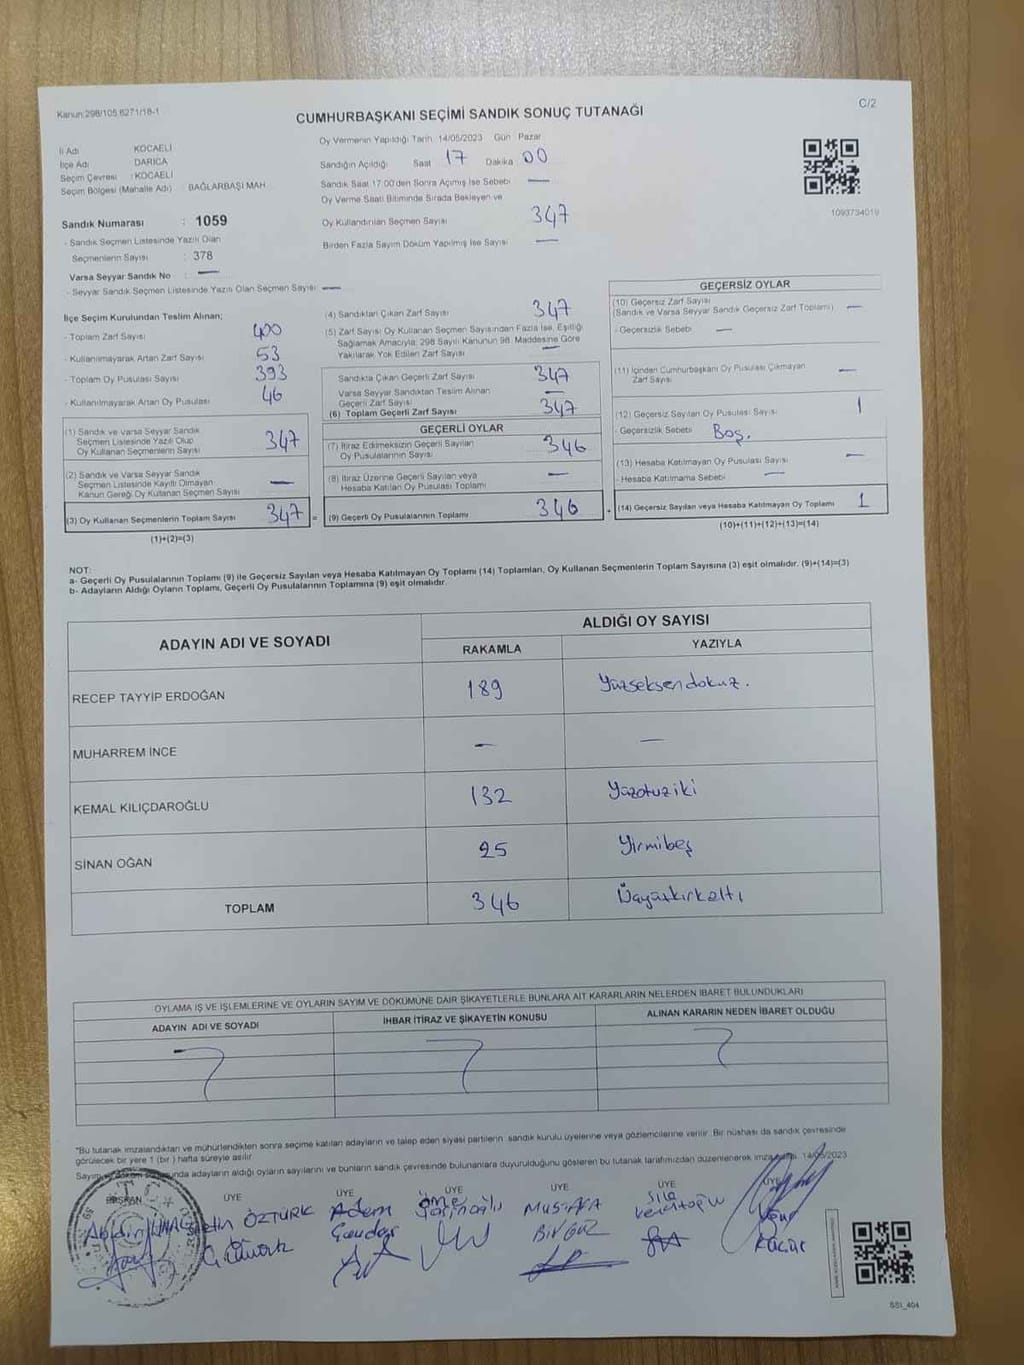 Kanun:298/105,6271/18-1
C/2
CUMHURBAŞKANI SEÇİMİ SANDIK SONUÇ TUTANAĞI
İl Adı KOCAELİ
İlçe Adı DARICA
Seçim Çevresi : KOCAELİ
Seçim Bölgesi (Mahalle Adı) : BAĞLARBAŞI MAH.
Sandık Numarası : 1059
- Sandık Seçmen Listesinde Yazılı Olan
Seçmenlerin Sayısı : 378
Varsa Seyyar Sandık No : —
- Seyyar Sandık Seçmen Listesinde Yazılı Olan Seçmen Sayısı: —
Oy Vermenin Yapıldığı Tarih 14/05/2023 Gün Pazar
Sandığın Açıldığı Saat 17 Dakika 00
Sandık Saat 17:00'den Sonra Açılmış İse Sebebi —
Oy Verme Saati Bitiminde Sırada Bekleyen ve
Oy Kullandırılan Seçmen Sayısı 347
Birden Fazla Sayım Döküm Yapılmış İse Sayısı —
1093734019
İlçe Seçim Kurulundan Teslim Alınan;
- Toplam Zarf Sayısı 400
- Kullanılmayarak Artan Zarf Sayısı 53
- Toplam Oy Pusulası Sayısı 393
- Kullanılmayarak Artan Oy Pusulası 46
(1) Sandık ve Varsa Seyyar Sandık
Seçmen Listesinde Yazılı Olup
Oy Kullanan Seçmenlerin Sayısı 347
(2) Sandık ve Varsa Seyyar Sandık
Seçmen Listesinde Kayıtlı Olmayan
Kanun Gereği Oy Kullanan Seçmen Sayısı —
(3) Oy Kullanan Seçmenlerin Toplam Sayısı 347 =
(1)+(2)=(3)
(4) Sandıktan Çıkan Zarf Sayısı 347
(5) Zarf Sayısı Oy Kullanan Seçmen Sayısından Fazla İse, Eşitliği
Sağlamak Amacıyla; 298 Sayılı Kanunun 98. Maddesine Göre
Yakılarak Yok Edilen Zarf Sayısı —
Sandıkta Çıkan Geçerli Zarf Sayısı 347
Varsa Seyyar Sandıktan Teslim Alınan
Geçerli Zarf Sayısı —
(6) Toplam Geçerli Zarf Sayısı 347
GEÇERLİ OYLAR
(7) İtiraz Edilmeksizin Geçerli Sayılan
Oy Pusulalarının Sayısı 346
(8) İtiraz Üzerine Geçerli Sayılan veya
Hesaba Katılan Oy Pusulası Toplamı —
(9) Geçerli Oy Pusulalarının Toplamı 346
GEÇERSİZ OYLAR
(10) Geçersiz Zarf Sayısı
(Sandık ve Varsa Seyyar Sandık Geçersiz Zarf Toplamı) —
- Geçersizlik Sebebi —
(11) İçinden Cumhurbaşkanı Oy Pusulası Çıkmayan
Zarf Sayısı —
(12) Geçersiz Sayılan Oy Pusulası Sayısı 1
- Geçersizlik Sebebi Boş.
(13) Hesaba Katılmayan Oy Pusulası Sayısı —
- Hesaba Katılmama Sebebi —
(14) Geçersiz Sayılan veya Hesaba Katılmayan Oy Toplamı 1
(10)+(11)+(12)+(13)=(14)
NOT:
a- Geçerli Oy Pusulalarının Toplamı (9) ile Geçersiz Sayılan veya Hesaba Katılmayan Oy Toplamı (14) Toplamları, Oy Kullanan Seçmenlerin Toplam Sayısına (3) eşit olmalıdır. (9)+(14)=(3)
b- Adayların Aldığı Oyların Toplamı, Geçerli Oy Pusulalarının Toplamına (9) eşit olmalıdır.
ADAYIN ADI VE SOYADI ALDIĞI OY SAYISI
RAKAMLA YAZIYLA
RECEP TAYYİP ERDOĞAN 189 Yüzseksendokuz.
MUHARREM İNCE — —
KEMAL KILIÇDAROĞLU 132 Yüzotuziki
SİNAN OĞAN 25 Yirmibeş
TOPLAM 346 Üçyüzkırkaltı
OYLAMA İŞ VE İŞLEMLERİNE VE OYLARIN SAYIM VE DÖKÜMÜNE DAİR ŞİKAYETLERLE BUNLARA AİT KARARLARIN NELERDEN İBARET BULUNDUKLARI
ADAYIN ADI VE SOYADI İHBAR İTİRAZ VE ŞİKAYETİN KONUSU ALINAN KARARIN NEDEN İBARET OLDUĞU
*Bu tutanak imzalandıktan ve mühürlendikten sonra seçime katılan adayların ve talep eden siyasi partilerin sandık kurulu üyelerine veya gözlemcilerine verilir. Bir nüshası da sandık çevresinde
görülecek bir yere 1 (bir) hafta süreyle asılır.
adayların aldığı oyların sayılarını ve bunların sandık çevresinde bulunanlara duyurulduğunu gösteren bu tutanak tarafımızdan düzenlenerek 14/05/2023
BAŞKAN ÜYE ÜYE ÜYE ÜYE ÜYE
ÖZTÜRK Adem Mustafa Sıla
BİNGÖL
SSI_404